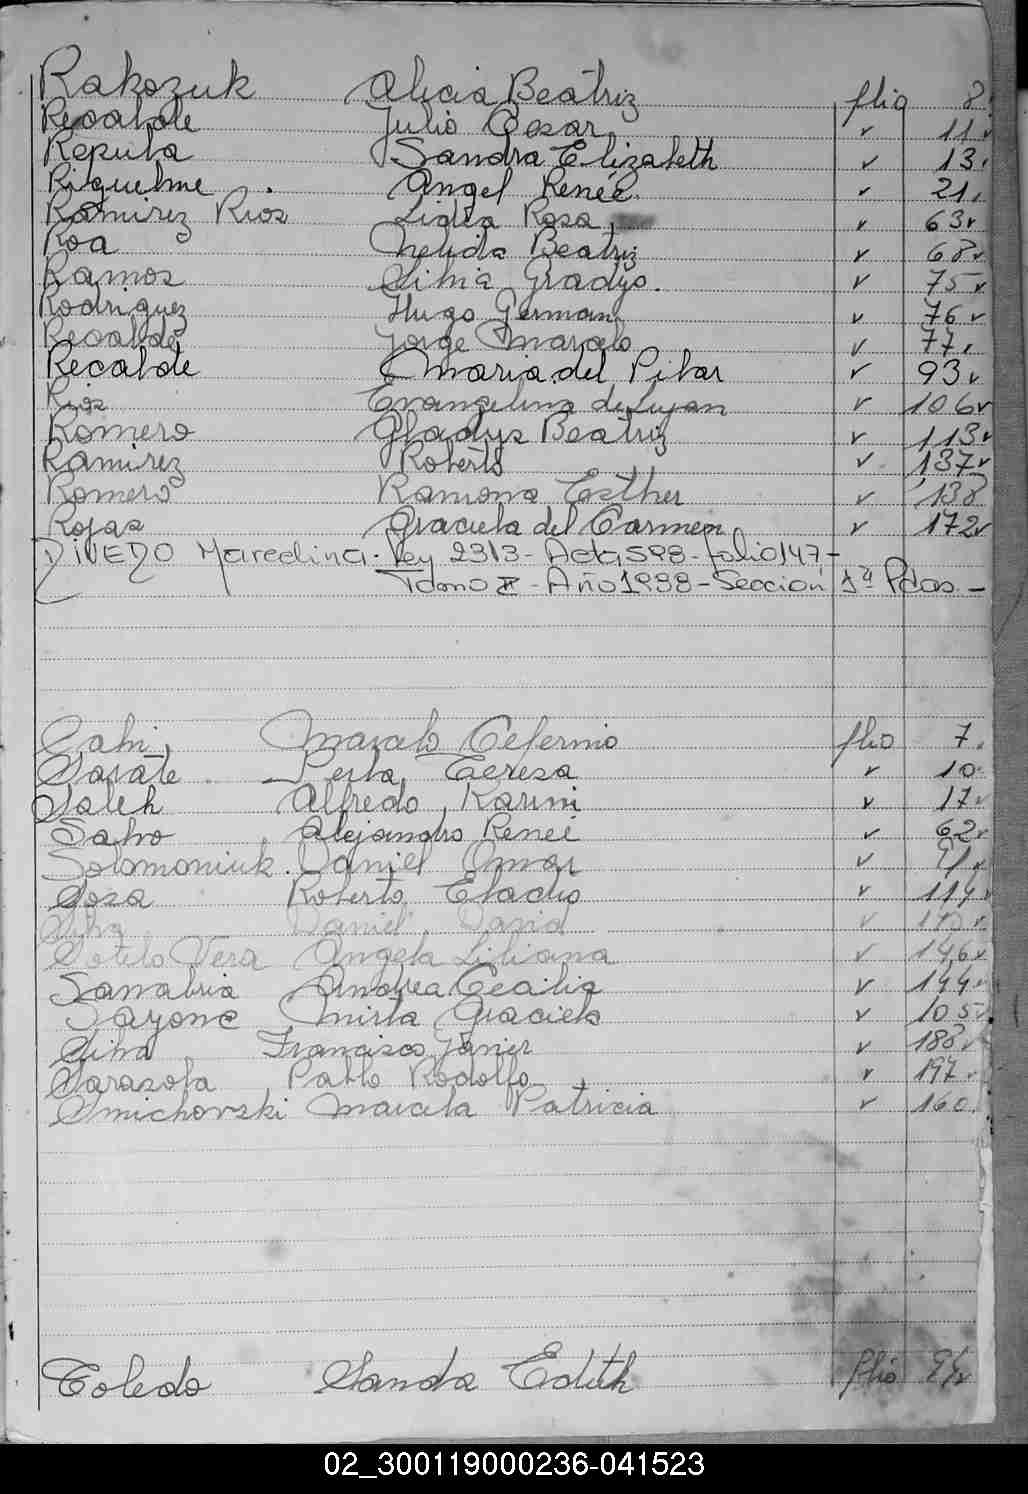 Rakozuk Alicia Beatriz folio 8
Recalde Julio Cesar " 11
Reputa Sandra Elizabeth " 13
Riquelme Angel Reneé " 21
Ramirez Rios Lidia Rosa " 63
Roa Nelida Beatriz " 68
Ramos Silvia Gradys. " 75
Rodriguez Hugo German " 76
Recalde Jorge Marcelo " 77
Recalde Maria del Pilar " 93
Rios Evangelina de Lujan " 106
Romero Gladys Beatriz " 113
Ramirez Roberto " 137
Romero Ramona Esther " 138
Rojas Graciela del Carmen " 172
RIVERO Marcelina. Ley 2313 - Acta 598 - folio 147 -
Tomo II - Año 1998 - Sección 1ª Pdos. -
Marcelo Ceferino folio 7
Sarate Perla Teresa " 10
Saleh Alfredo Karim " 17
Alejandro Reneé " 62
Solomoniuk Daniel Omar "
Sosa Roberto Eladio " 114
Silva Daniel David "
Sotelo Vera Angela Liliana " 146
Sanabria Andrea Cecilia " 144
Sayone Mirta Graciela " 105
Silva Francisco Javier " 188
Sarasola Pablo Rodolfo " 197
Smichovski Marcela Patricia " 160
Toledo Sanda Edith folio
02_300119000236-041523